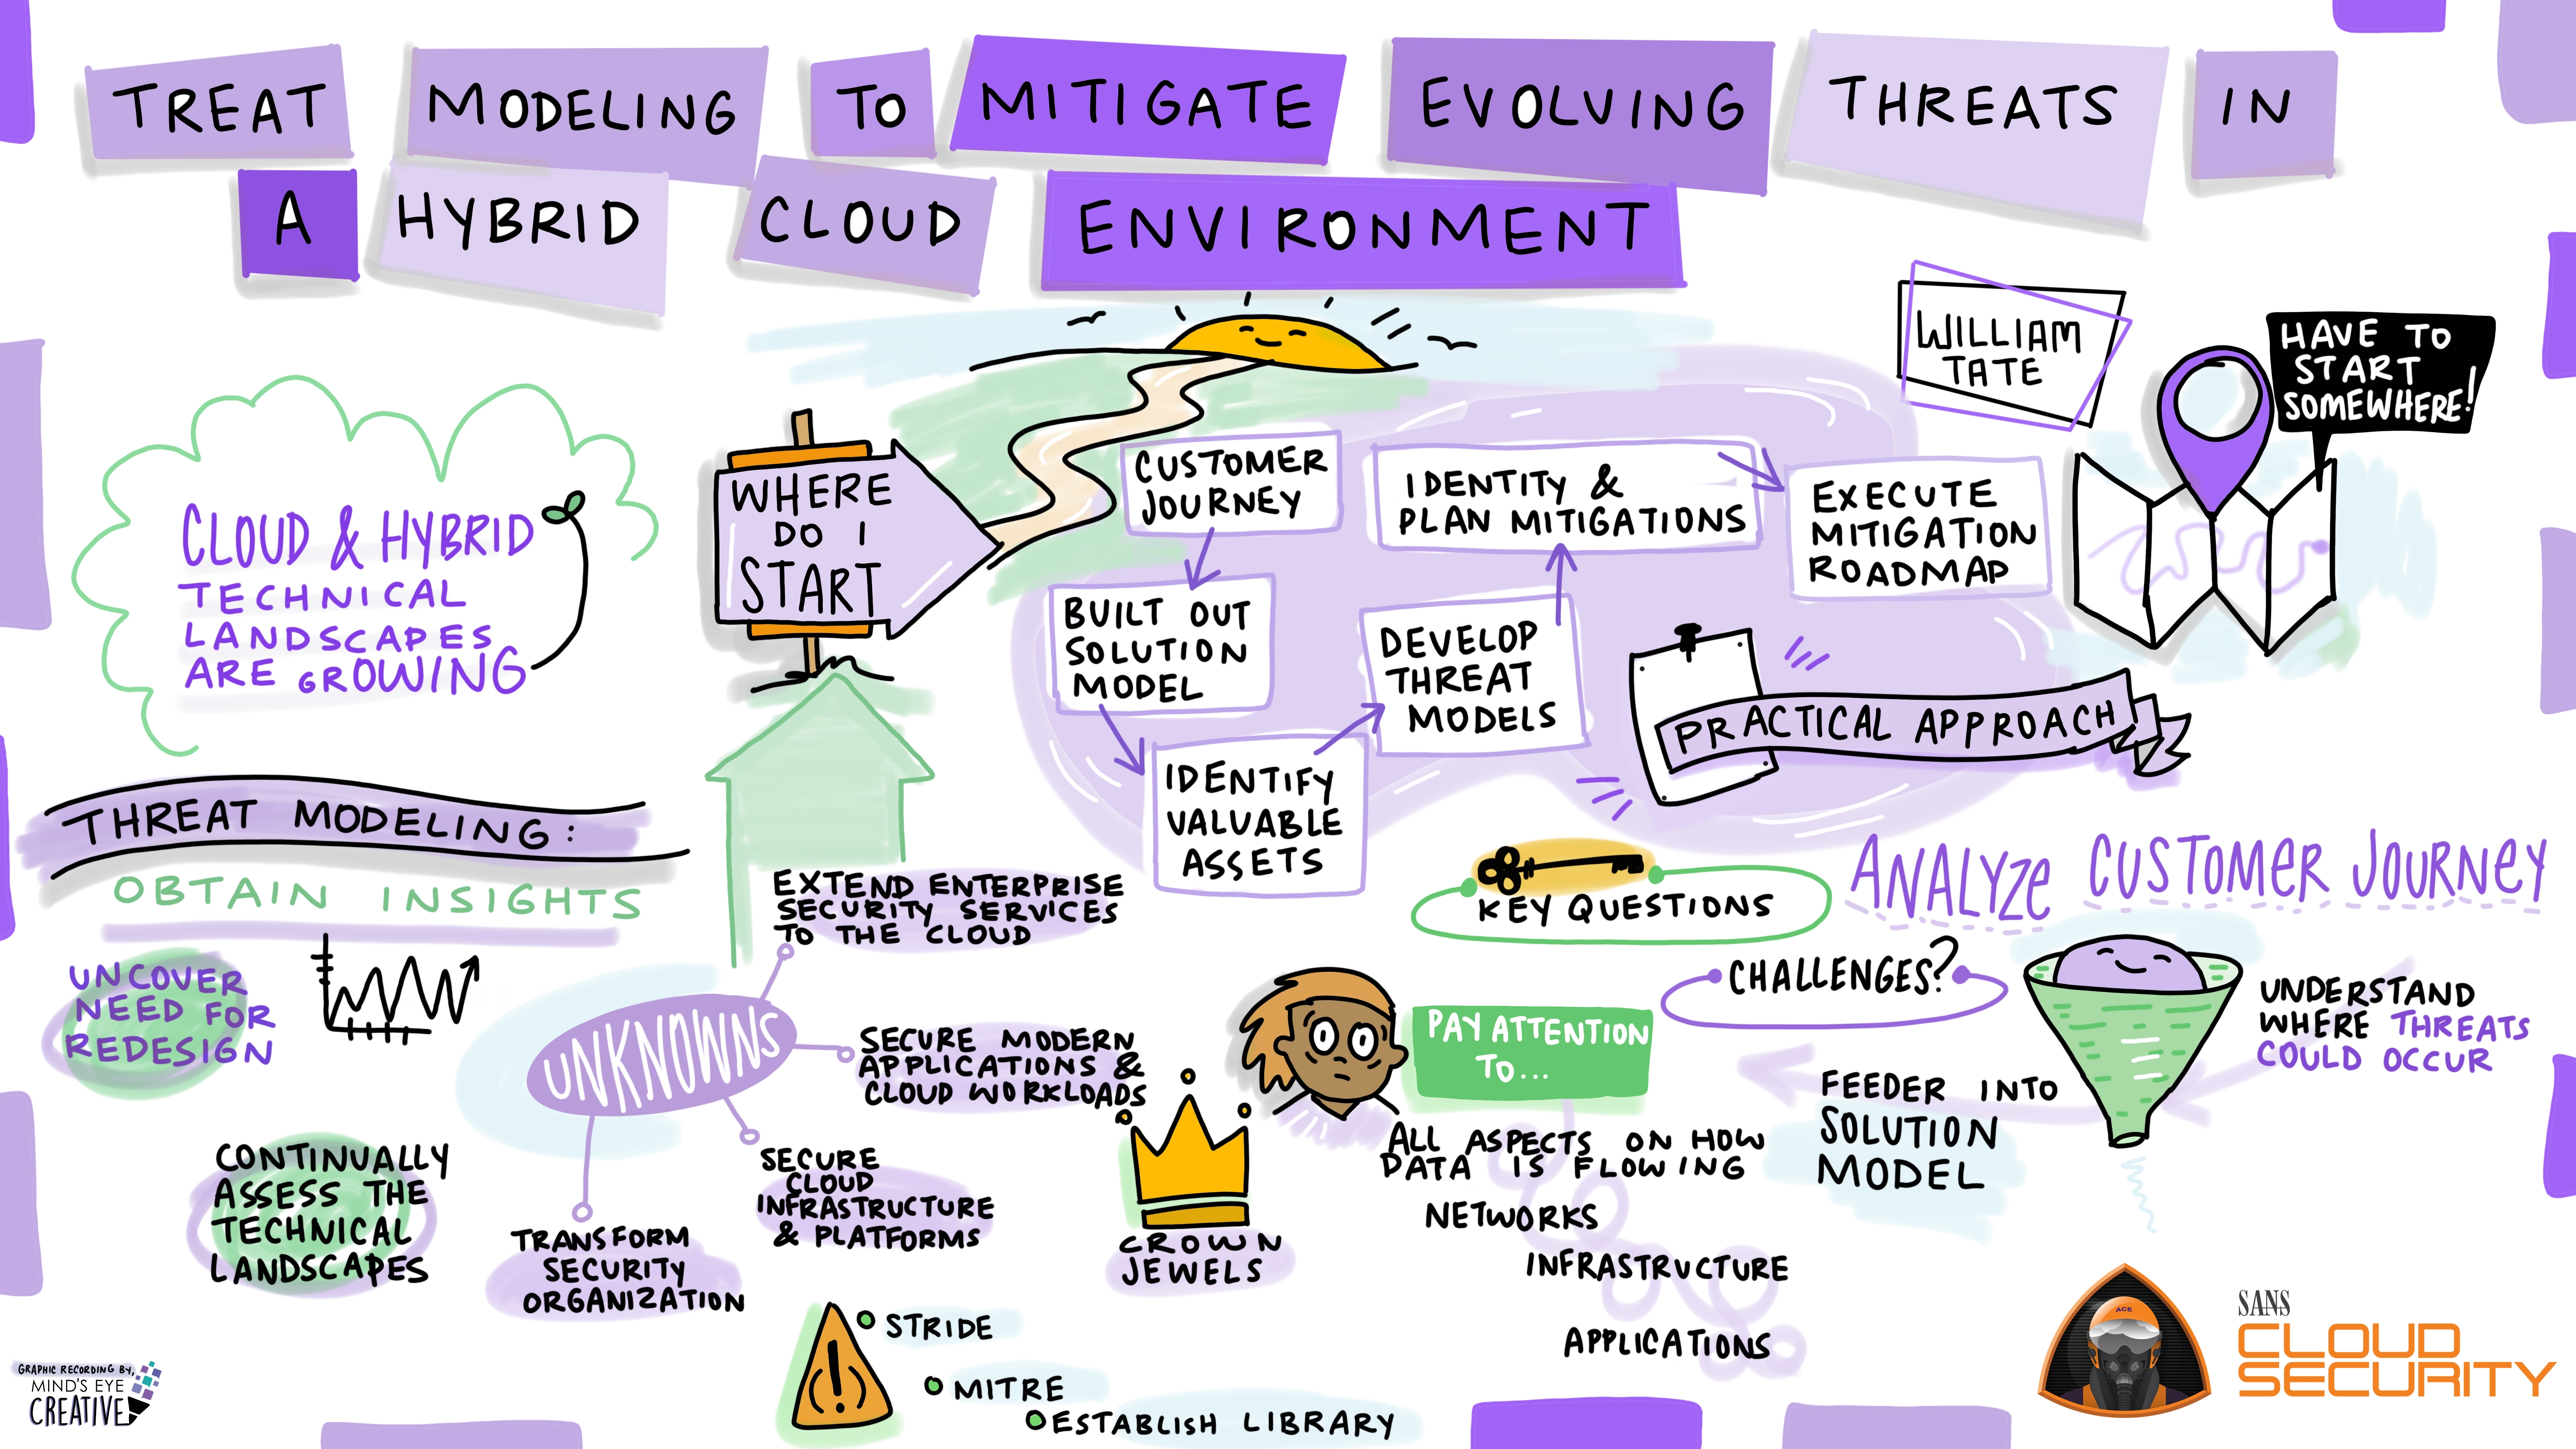 TREAT MODELING TO MITIGATE EVOLVING THREATS IN
A HYBRID CLOUD ENVIRONMENT
WILLIAM
TATE
HAVE TO
START
SOMEWHERE!
CLOUD & HYBRID
TECHNICAL
LANDSCAPES
ARE GROWING
WHERE
DO I
START
CUSTOMER
JOURNEY
BUILT OUT
SOLUTION
MODEL
IDENTIFY
VALUABLE
ASSETS
DEVELOP
THREAT
MODELS
IDENTITY &
PLAN MITIGATIONS
EXECUTE
MITIGATION
ROADMAP
PRACTICAL APPROACH
THREAT MODELING:
OBTAIN INSIGHTS
UNCOVER
NEED FOR
REDESIGN
CONTINUALLY
ASSESS THE
TECHNICAL
LANDSCAPES
UNKNOWNS
EXTEND ENTERPRISE
SECURITY SERVICES
TO THE CLOUD
SECURE MODERN
APPLICATIONS &
CLOUD WORKLOADS
SECURE
CLOUD
INFRASTRUCTURE
& PLATFORMS
TRANSFORM
SECURITY
ORGANIZATION
CROWN
JEWELS
STRIDE
MITRE
ESTABLISH LIBRARY
KEY QUESTIONS
PAY ATTENTION
TO...
ALL ASPECTS ON HOW
DATA IS FLOWING
NETWORKS
INFRASTRUCTURE
APPLICATIONS
ANALYZE CUSTOMER JOURNEY
CHALLENGES?
UNDERSTAND
WHERE THREATS
COULD OCCUR
FEEDER INTO
SOLUTION
MODEL
GRAPHIC RECORDING BY,
MIND'S EYE
CREATIVE
ACE
SANS
CLOUD
SECURITY